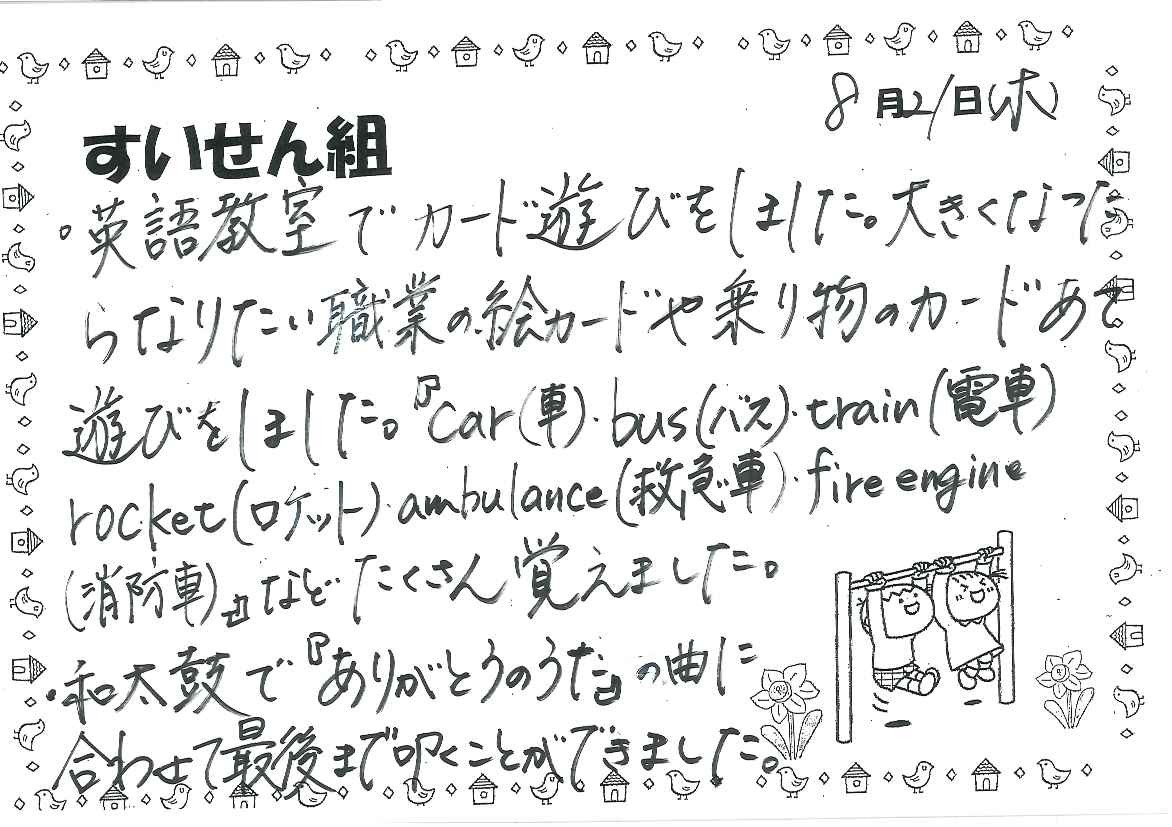 8月21日(木)
すいせん組
・英語教室でカード遊びをしました。大きくなった
らなりたい職業の絵カードや乗り物のカードあて
遊びをしました。『car(車)・bus(バス)・train(電車)
rocket(ロケット)・ambulance(救急車)・fire engine
(消防車)』などたくさん覚えました。
・和太鼓で『ありがとうのうた』の曲に
合わせて最後まで叩くことができました。